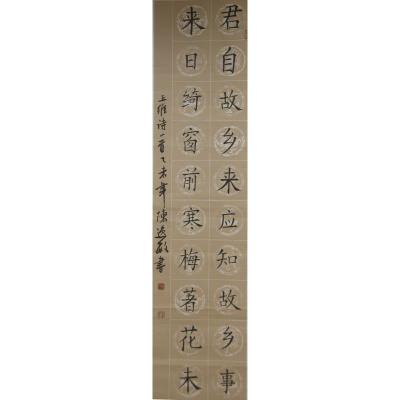 君自故乡来应知故乡事
来日绮窗前寒梅著花未
王维诗一首乙未年陈
书